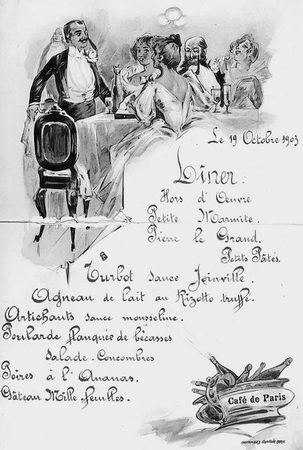 Le 19 Octobre 1903
Dîner.
Hors d'Oeuvre
Petite Marmite.
Pierre le Grand.
Petits Pâtés.
Turbot sauce Joinville.
Agneau de lait au Rizotto truffé.
Artichauts sauce mousseline.
Poularde flanquée de bécasses
Salade. Concombres
Poires à l'Ananas.
Gâteau Mille feuilles.
Café de Paris